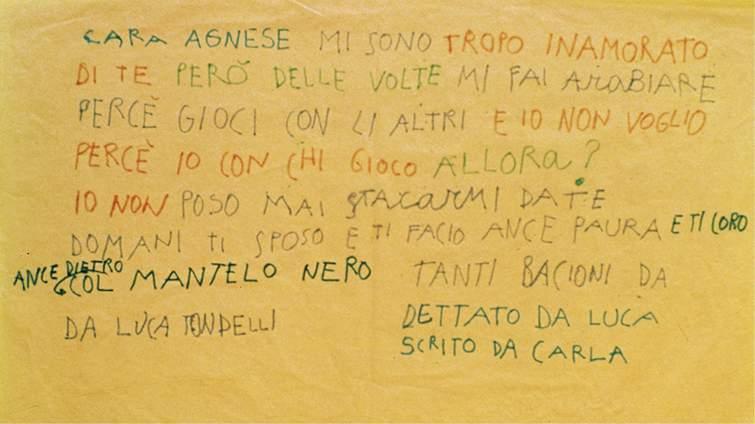 CARA AGNESE MI SONO TROPO INAMORATO
DI TE PERÒ DELLE VOLTE MI FAI ARABIARE
PERCÈ GIOCI CON LI ALTRI E IO NON VOGLIO
PERCÈ IO CON CHI GIOCO ALLORA?
IO NON POSO MAI STACARMI DA TE
DOMANI TI SPOSO E TI FACIO ANCE PAURA E TI CORO
ANCE DIETRO COL MANTELO NERO TANTI BACIONI DA
DA LUCA TONDELLI
DETTATO DA LUCA
SCRITO DA CARLA